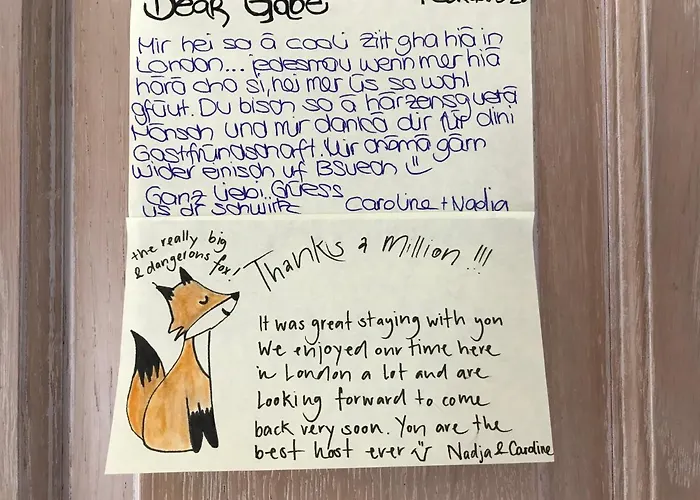 Dear Gabe
Mir hei so ä cooli Ziit gha hiä in
London... jedesmau wenn mer hiä
härä cho si, hei mer üs so wohl
gfüut. Du bisch so ä härzensguetä
Mönsch und mir dankä dir für dini
Gastfründschaft. Mir chämä gärn
wider einisch uf Bsuech
Ganz liebi Grüess
us dr Schwiitz Caroline + Nadja
the really big
& dangerous fox!
Thanks a Million !!!
It was great staying with you
We enjoyed our time here
in London a lot and are
looking forward to come
back very soon. You are the
best host ever Nadja & Caroline